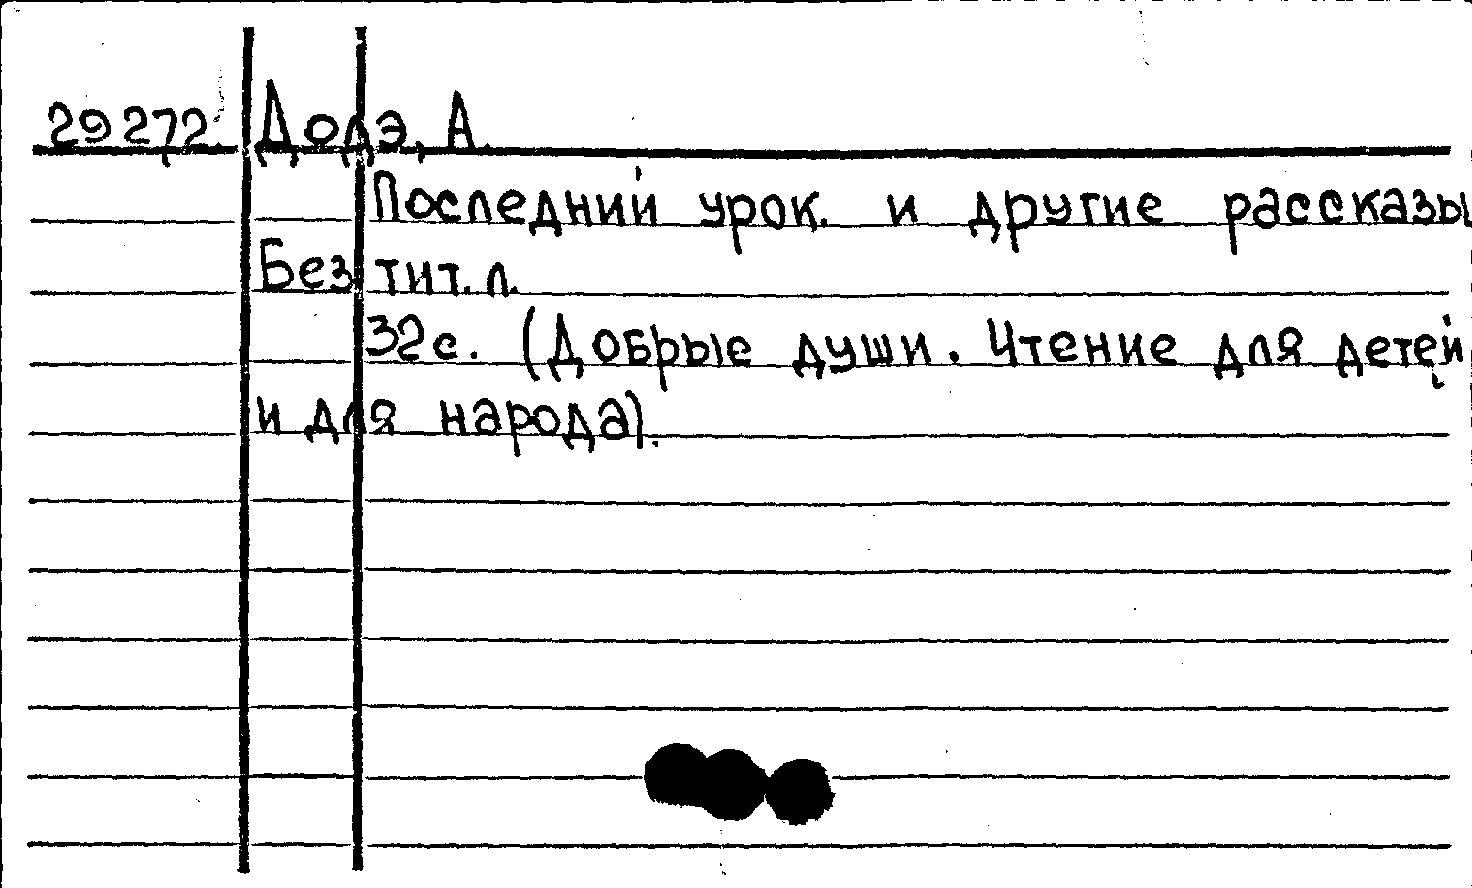 29272. Додэ, А.
Последний урок. и другие рассказы
Без тит. л.
32с. (Добрые души. Чтение для детей
и для народа).